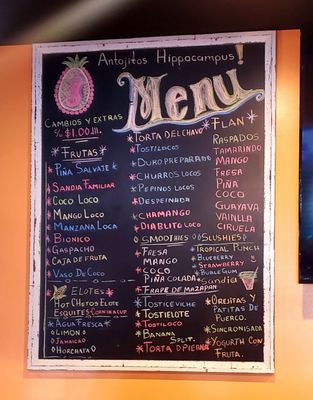 Antojitos Hippocampus!
Menu
Cambios y extras
$1.00
*Frutas*
*Piña Salvaje*
*Sandia Familiar
*Coco Loco
*Mango Loco
*Manzana Loca
*Bionico
*Gaspacho
*Caja de fruta
*Vaso De Coco
Elotes
Hot Chetos Elote
Esquites: Corn in a cup
*Agua Fresca*
Limon
Jamaica
Horchata
*Torta del Chavo
*Tostilocos
*Duro preparado
*Churros locos
*Pepinos locos
*Despeinada
*Chamango
*Diablito loco
Smoothies
*Fresa
Mango
Coco
Piña Colada
*Frape de Mazapan
*Tosticeviche
*Tostielote
*Tostiloco
*Banana
Split.
*Torta D'Pierna
*Flan*
Raspados
Tamarindo
Mango
Fresa
Piña
Coco
Guayava
Vainlla
Ciruela
Slushies
*Tropical Punch
*Blueberry
*Strawberry
*Bublegum
Sandia
*Orejitas y
Patitas de
Puerco.
*Sincronisada
*Yogurth con
Fruta.